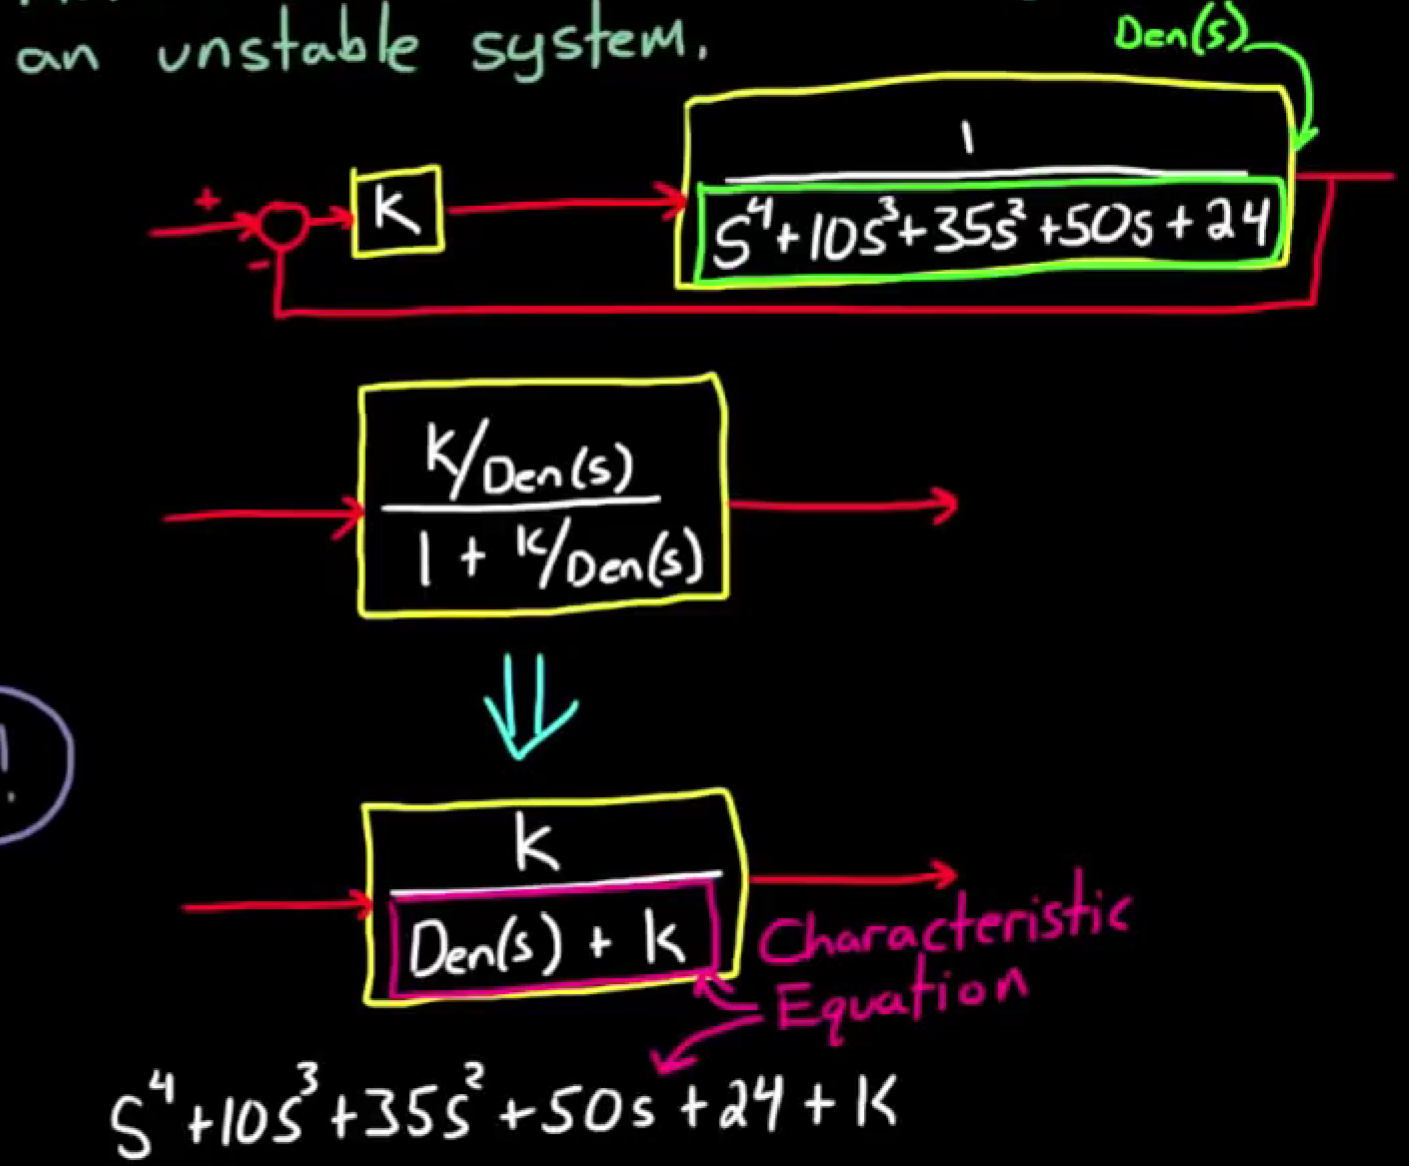 an unstable system.
Den(s)
+
K
-
1
S⁴+10s³+35s²+50s+24
K/Den(s)
1 + K/Den(s)
!
K
Den(s) + K
Characteristic
Equation
S⁴+10s³+35s²+50s+24+K